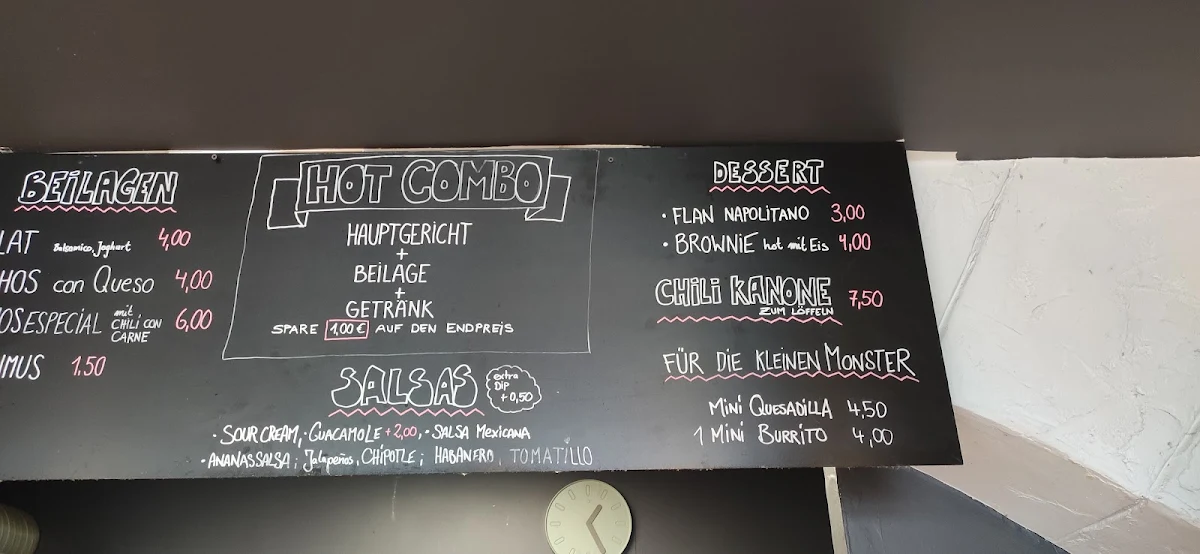 BEILAGEN
LAT Balsamico, Joghurt 4,00
HOS con Queso 4,00
OS ESPECIAL mit CHILI CON CARNE 6,00
MUS 1.50
HOT COMBO
HAUPTGERICHT
+
BEILAGE
+
GETRÄNK
SPARE 1,00 € AUF DEN ENDPREIS
SALSAS
extra
DIP
+0,50
· SOUR CREAM, · GUACAMOLE +2,00, · SALSA MEXICANA
· ANANASSALSA ; Jalapeños, CHIPOTLE ; HABANERO, TOMATILLO
DESSERT
· FLAN NAPOLITANO 3,00
· BROWNIE hot mit Eis 4,00
CHILI KANONE 7,50
ZUM LÖFFELN
FÜR DIE KLEINEN MONSTER
MINI QUESADILLA 4,50
1 MINI BURRITO 4,00